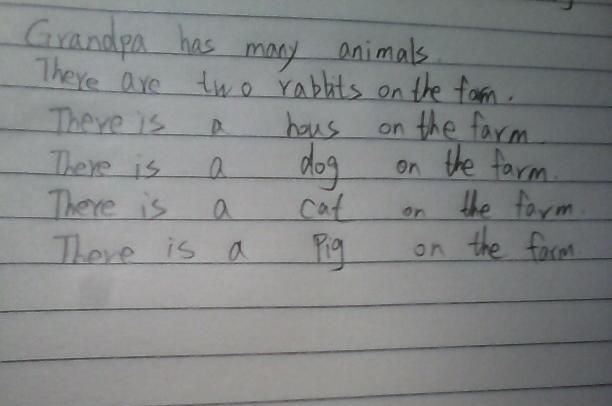 Grandpa has many animals.
There are two rabbits on the fam.
There is a hous on the farm
There is a dog on the farm.
There is a cat on the farm.
There is a Pig on the farm.